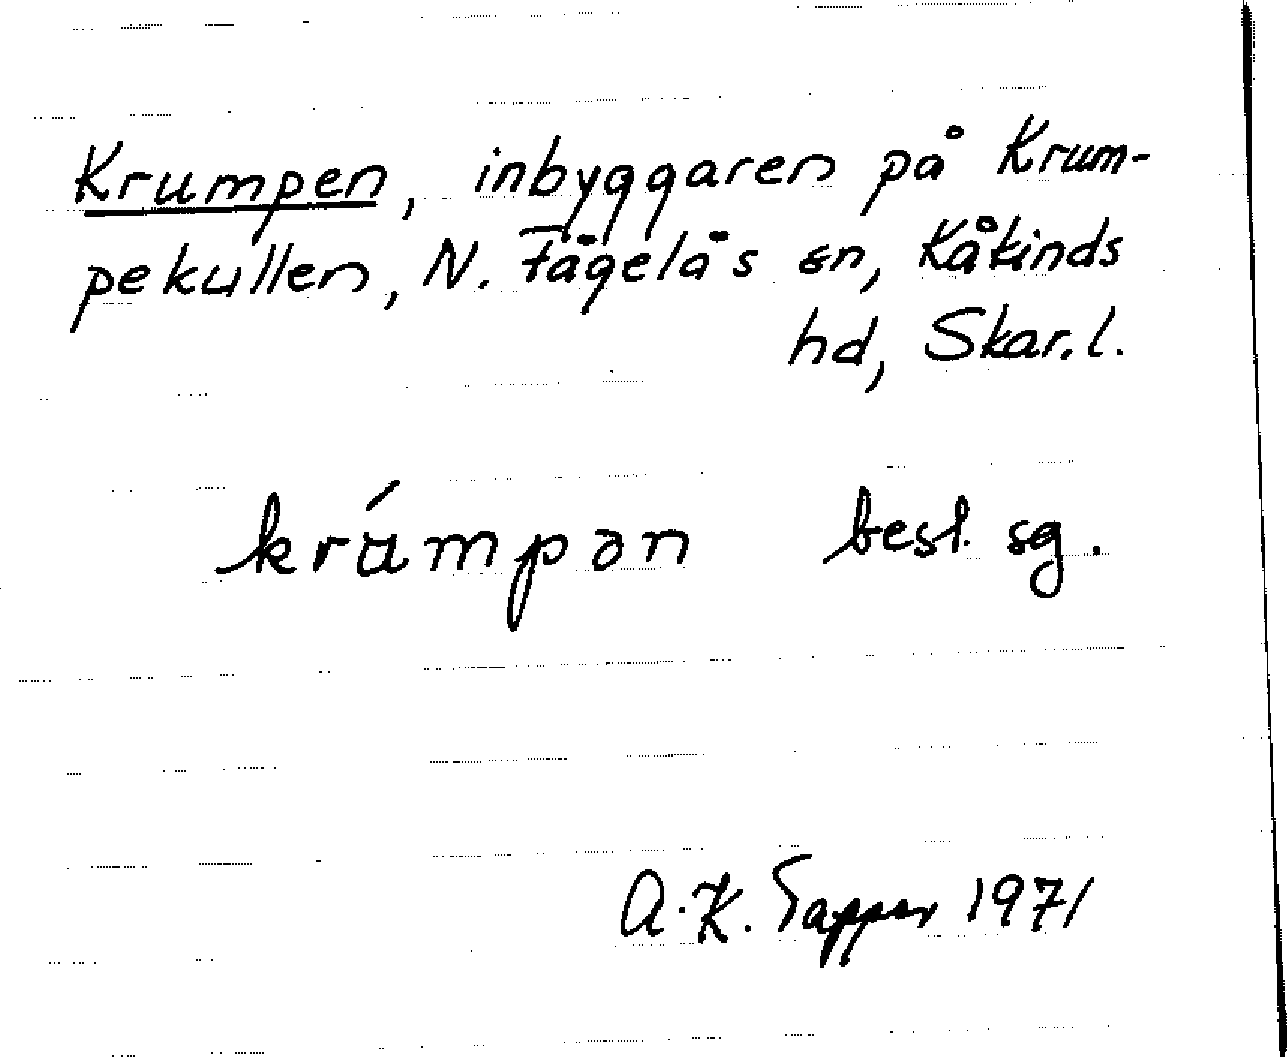 Krumpen, inbyggaren på Krum-
pekullen, N. Fågelås sn, Kåkinds
hd, Skar. l.
krúmpən best. sg.
A.K. Tapper 1971